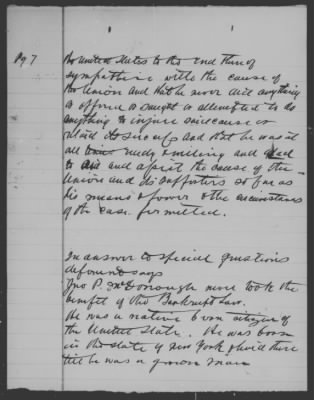 Pg 7
the United States to the end thereof
sympathize with the cause of
the Union and that he never did anything
or offered or sought or attempted to do
anything to injure said cause or
retard its success and that he was at
all times ready and willing and
to aid and assist the cause of the
Union and its supporters so far as
his means & power & the circumstances
of the case permitted.
In answer to special questions
deponent says
Jno P. McDonough never took the
benefit of the Bankrupt law.
He was a native born citizen of
the United State. He was born
in the state of New York & lived there
till he was a grown man